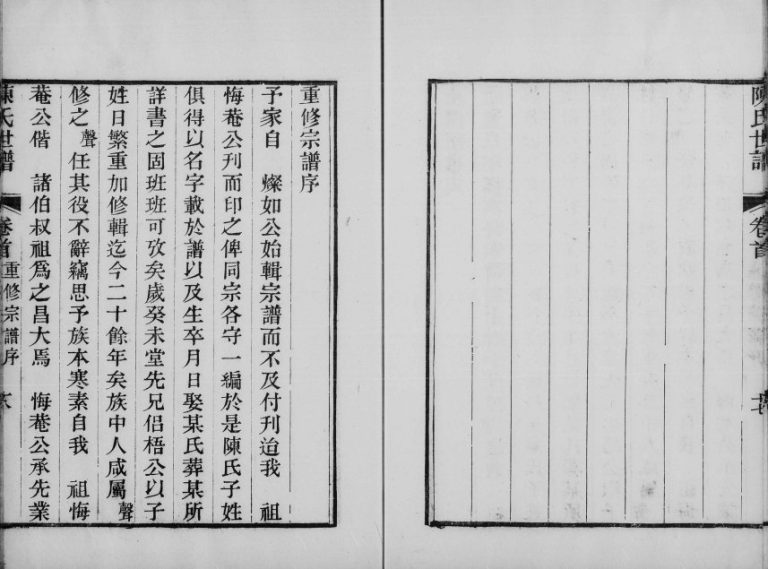 陳氏世譜
卷首
重修宗譜序
予家自　燦如公始輯宗譜而不及付刊迨我　祖
悔菴公刋而印之俾同宗各守一編於是陳氏子姓
俱得以名字載於譜以及生卒月日娶某氏葬某所
詳書之固班班可攷矣歲癸未堂先兄侣梧公以子
姓日繁重加修輯迄今二十餘年矣族中人咸屬聲
修之聲任其役不辭竊思予族本寒素自我　祖悔
菴公偕　諸伯叔祖爲之昌大焉　悔菴公承先業
陳氏世譜
卷首
重修宗譜序